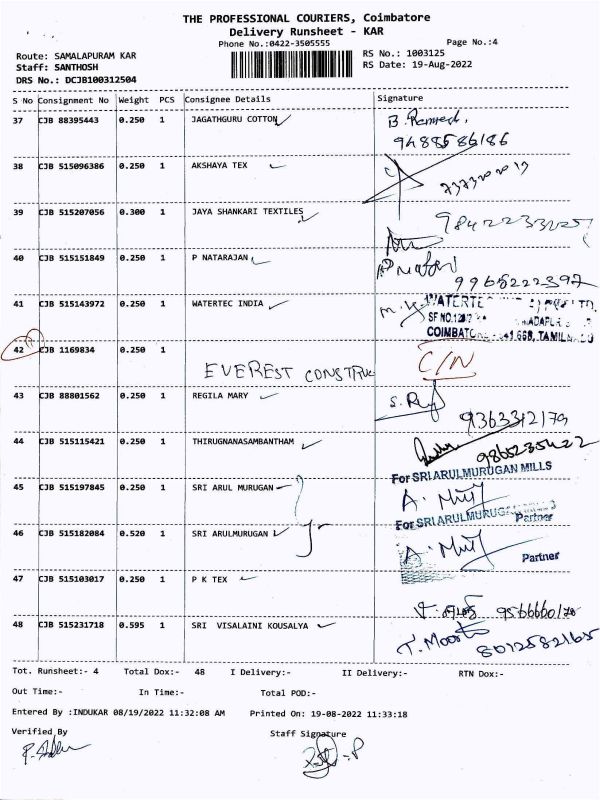 THE PROFESSIONAL COURIERS, Coimbatore
Delivery Runsheet - KAR
Phone No.:0422-3505555
Page No.:4
Route: SAMALAPURAM KAR
RS No.: 1003125
Staff: SANTHOSH
RS Date: 19-Aug-2022
DRS No.: DCJB100312504
S No Consignment No Weight PCS Consignee Details Signature
37 CJB 88395443 0.250 1 JAGATHGURU COTTON
9488586186
38 CJB 515096386 0.250 1 AKSHAYA TEX
39 CJB 515207056 0.300 1 JAYA SHANKARI TEXTILES
40 CJB 515151849 0.250 1 P NATARAJAN
9965222397
41 CJB 515143972 0.250 1 WATERTEC INDIA
SF NO.
COIMBATORE
42 CJB 1169834 0.250 1
EVEREST CONSTRUC C/N
43 CJB 88801562 0.250 1 REGILA MARY
9363312179
44 CJB 515115421 0.250 1 THIRUGNANASAMBANTHAM
9865235422
For SRI ARULMURUGAN MILLS
45 CJB 515197845 0.250 1 SRI ARUL MURUGAN
For SRI ARULMURUGAN MILLS
Partner
46 CJB 515182084 0.520 1 SRI ARULMURUGAN
Partner
47 CJB 515103017 0.250 1 P K TEX
48 CJB 515231718 0.595 1 SRI VISALAINI KOUSALYA
8012582165
Tot. Runsheet:- 4 Total Dox:- 48 I Delivery:- II Delivery:- RTN Dox:-
Out Time:- In Time:- Total POD:-
Entered By :INDUKAR 08/19/2022 11:32:08 AM Printed On: 19-08-2022 11:33:18
Verified By Staff Signature